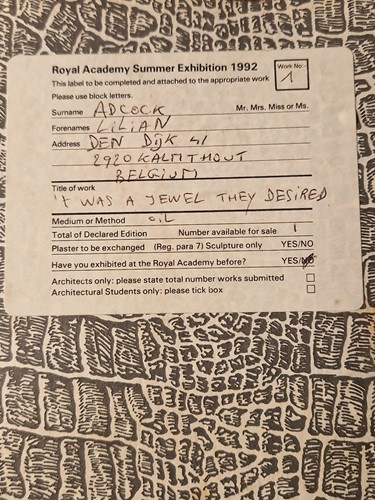 Royal Academy Summer Exhibition 1992
Work No:-
1
This label to be completed and attached to the appropriate work
Please use block letters.
Surname ADCOCK Mr. Mrs. Miss or Ms.
Forenames LiLiAN
Address DEN DijK 41
2920 KALMTHOUT
BELGIUM
Title of work
'T WAS A JEWEL THEY DESIRED
Medium or Method OiL
Total of Declared Edition Number available for sale 1
Plaster to be exchanged (Reg. para 7) Sculpture only YES/NO
Have you exhibited at the Royal Academy before? YES/NO
Architects only: please state total number works submitted
Architectural Students only: please tick box